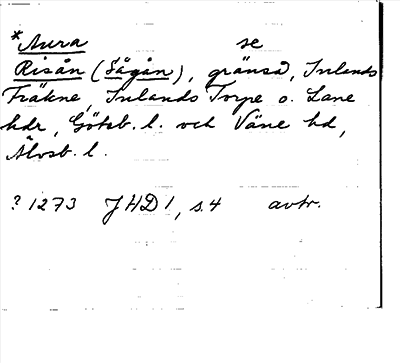 *Aura se
Risån (Sågån), gränså, Inlands
Fräkne, Inlands Torpe o. Lane
hdr, Göteb. l. och Väne hd,
Älvsb. l.
? 1273 JHD 1, s. 4 avtr.